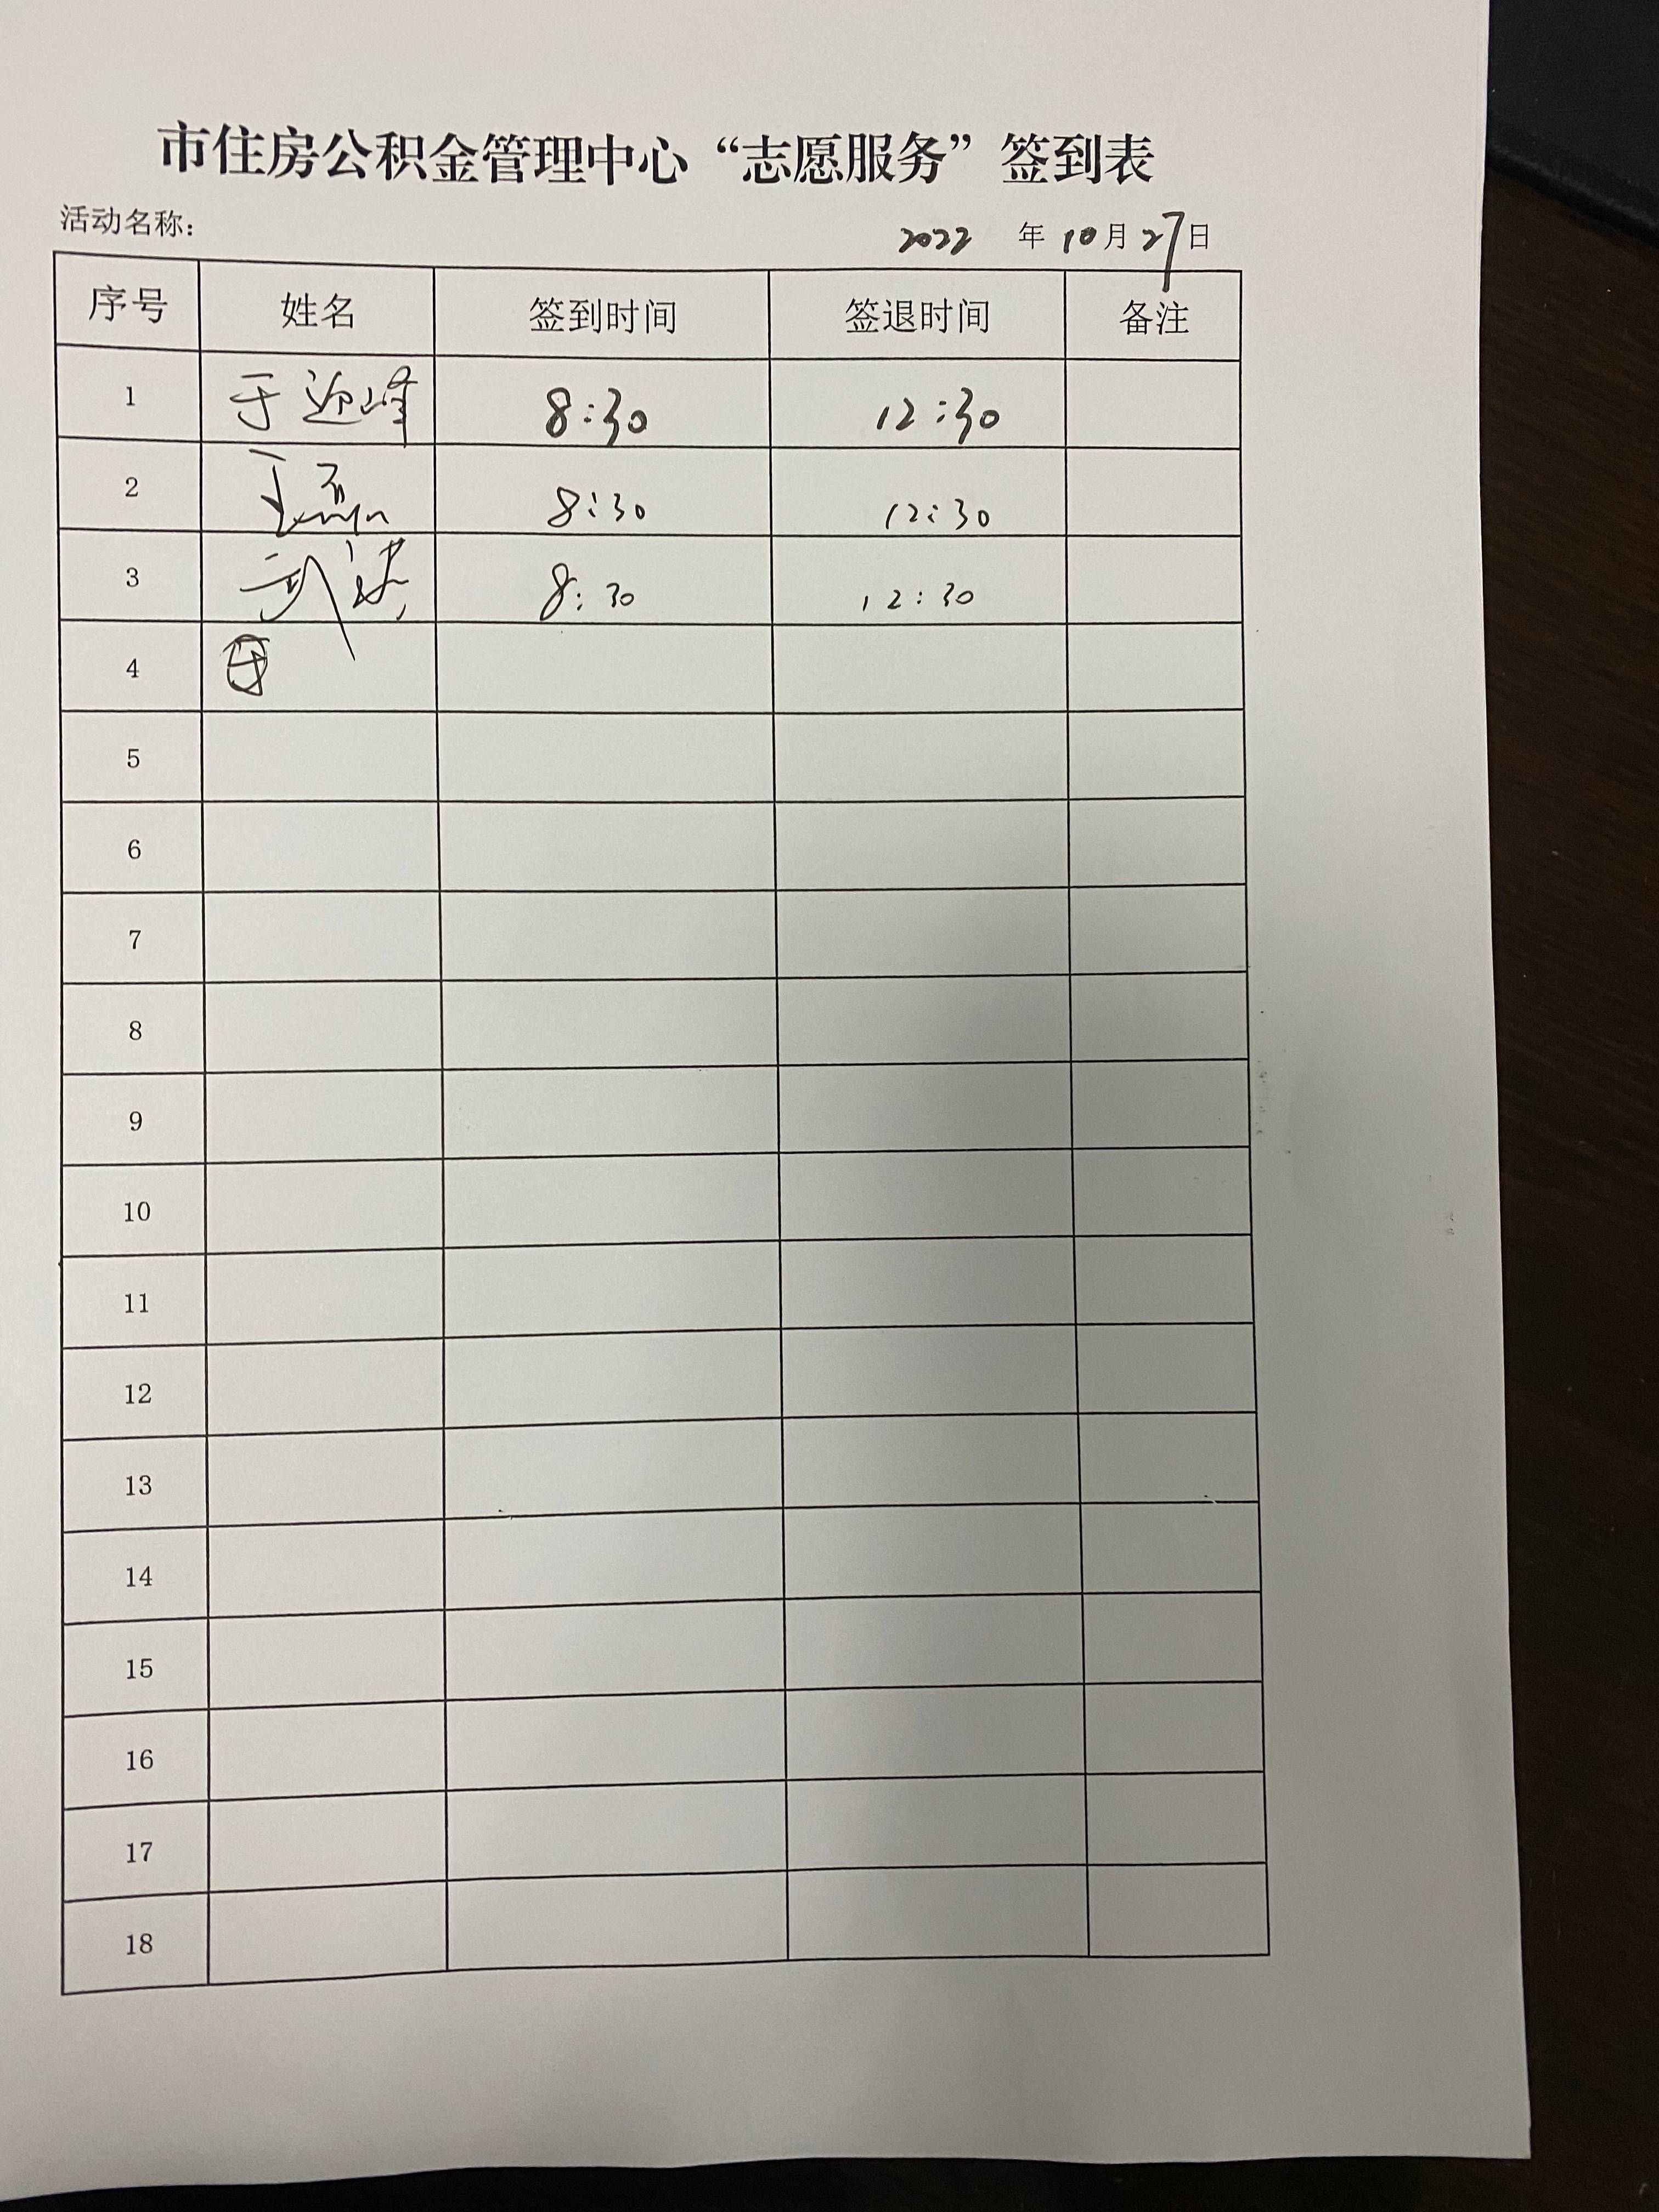 市住房公积金管理中心“志愿服务”签到表
活动名称：
2022 年 10 月 27 日
序号 姓名 签到时间 签退时间 备注
1 于迎峰 8:30 12:30
2 王磊 8:30 12:30
3 8:30 12:30
4
5
6
7
8
9
10
11
12
13
14
15
16
17
18